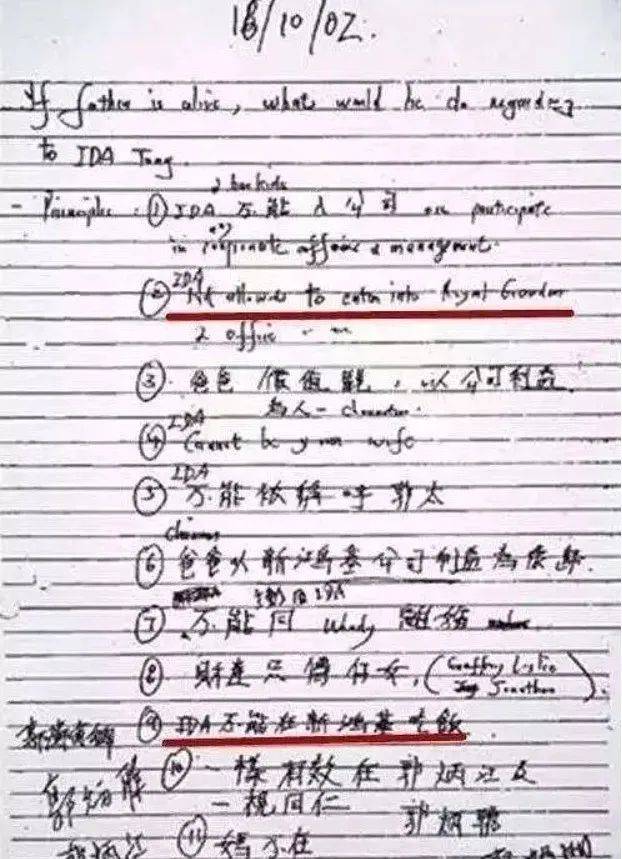 18/10/02.
If father is alive, what would he do regarding
to IDA Tong.
- Principles: ① IDA 不能入公司 or participate
in corporate affairs & management.
② IDA Not allowed to enter into Royal Garden
2 office
③ 爸爸價值觀,以公司利益
為人-character.
④ IDA Cannot be your wife
⑤ IDA 不能依稱呼郭太
⑥ 爸爸以新鴻基公司利益為
⑦ 不能同 Wendy 離婚
⑧ 財產只傳仔女,(Geoffrey Leslie
Jonathan).
⑨ IDA不能在新鴻基吃飯
⑩ 一樣有效在郭炳江及
一視同仁 郭炳聯
⑪ 媽不在
郭炳江